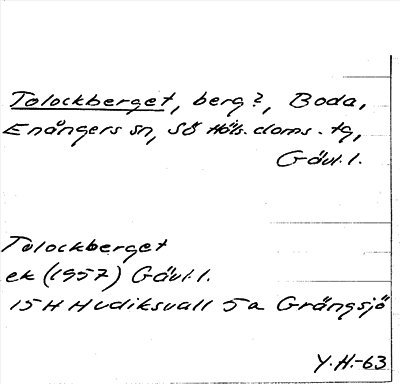 Tolockberget, berg?, Boda,
Enångers sn, Sö Häls. doms. tg,
Gävl. l.
Tolockberget
ek (1957) Gävl. l.
15H Hudiksvall 5a Grängsjö
Y.H.-63